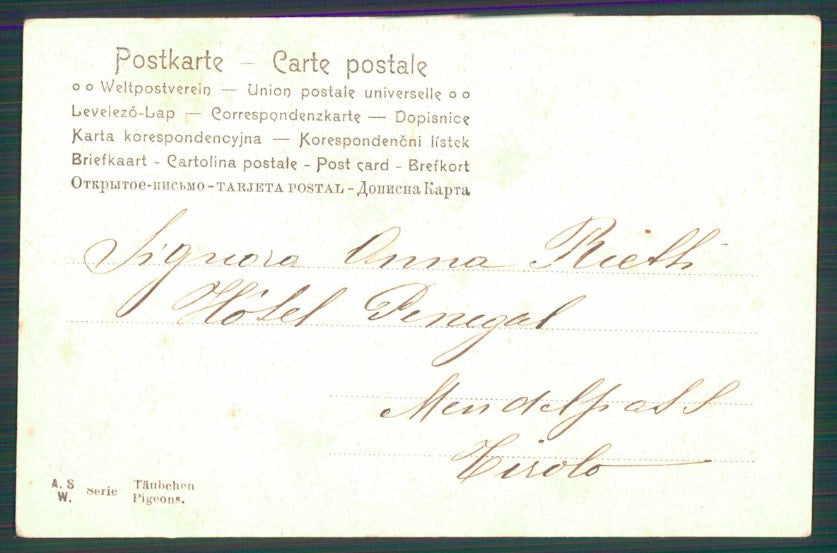 Postkarte – Carte postale
o o Weltpostverein — Union postale universelle o o
Levelező-Lap — Correspondenzkarte — Dopisnice
Karta korespondencyjna — Korespondenčni lístek
Briefkaart - Cartolina postale - Post card - Brefkort
Открытое-письмо - TARJETA POSTAL - Дописна Карта
Signora Anna Rieth
Hôtel Penegal
Mendelpass
Tirolo
A. S
W.
Serie
Täubchen
Pigeons.